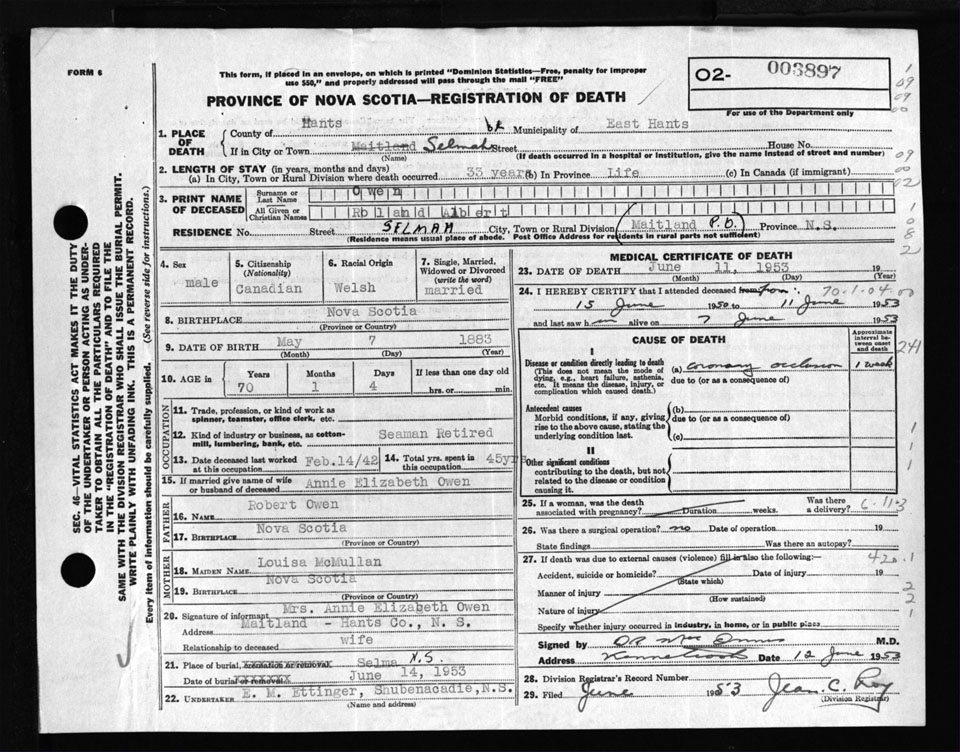 FORM 6
This form, if placed in an envelope, on which is printed "Dominion Statistics—Free, penalty for improper
use $50," and properly addressed will pass through the mail "FREE"
02- 003897
For use of the Department only
PROVINCE OF NOVA SCOTIA—REGISTRATION OF DEATH
1. PLACE OF DEATH
County of Hants Municipality of East Hants
If in City or Town Maitland Selmah Street House No.
(Name) (If death occurred in a hospital or institution, give the name instead of street and number)
2. LENGTH OF STAY (in years, months and days)
(a) In City, Town or Rural Division where death occurred 33 years (b) In Province Life (c) In Canada (if immigrant)
3. PRINT NAME OF DECEASED
Surname or Last Name Owen
All Given or Christian Names Roland Albert
RESIDENCE No. Street SELMAH City, Town or Rural Division (Maitland P.O.) Province N.S.
(Residence means usual place of abode. Post Office Address for residents in rural parts not sufficient)
4. Sex male
5. Citizenship (Nationality) Canadian
6. Racial Origin Welsh
7. Single, Married, Widowed or Divorced (write the word) married
8. BIRTHPLACE Nova Scotia
(Province or Country)
9. DATE OF BIRTH May 7 1883
(Month) (Day) (Year)
10. AGE in Years 70 Months 1 Days 4 If less than one day old hrs. or min.
OCCUPATION
11. Trade, profession, or kind of work as spinner, teamster, office clerk, etc.
12. Kind of industry or business, as cotton-mill, lumbering, bank, etc. Seaman Retired
13. Date deceased last worked at this occupation Feb.14/42
14. Total yrs. spent in this occupation 45yrs
15. If married give name of wife or husband of deceased Annie Elizabeth Owen
FATHER
16. NAME Robert Owen
17. BIRTHPLACE Nova Scotia
(Province or Country)
MOTHER
18. MAIDEN NAME Louisa McMullan
19. BIRTHPLACE Nova Scotia
(Province or Country)
20. Signature of informant Mrs. Annie Elizabeth Owen
Address Maitland - Hants Co., N. S.
Relationship to deceased wife
21. Place of burial, cremation or removal Selma N.S.
Date of burial or removal June 14, 1953
22. UNDERTAKER E. M. Ettinger, Shubenacadie, N.S.
(Name and address)
MEDICAL CERTIFICATE OF DEATH
23. DATE OF DEATH June 11, 1953 19
24. I HEREBY CERTIFY that I attended deceased from: 70-1-04
15 June 1950 to 11 June 1953
and last saw him alive on 7 June 1953
CAUSE OF DEATH
Approximate interval between onset and death
I
Disease or condition directly leading to death
(This does not mean the mode of dying, e.g., heart failure, asthenia, etc. It means the disease, injury, or complication which caused death.)
(a) coronary occlusion 1 week
due to (or as a consequence of)
Antecedent causes
Morbid conditions, if any, giving rise to the above cause, stating the underlying condition last.
(b)
due to (or as a consequence of)
(c)
II
Other significant conditions
contributing to the death, but not related to the disease or condition causing it.
25. If a woman, was the death associated with pregnancy? Duration weeks. Was there a delivery?
26. Was there a surgical operation? no Date of operation 19
State findings Was there an autopsy?
27. If death was due to external causes (violence) fill in also the following:—
Accident, suicide or homicide? Date of injury 19
(State which)
Manner of injury
(How sustained)
Nature of injury
Specify whether injury occurred in industry, in home, or in public place
Signed by M.D.
Address Date 12 June 1953
28. Division Registrar's Record Number
29. Filed June 1953 Jean C. Roy
(Division Registrar)
SEC. 46—VITAL STATISTICS ACT MAKES IT THE DUTY
OF THE UNDERTAKER OR PERSON ACTING AS UNDER-
TAKER TO OBTAIN ALL THE PARTICULARS REQUIRED
IN THE "REGISTRATION OF DEATH" AND TO FILE THE
SAME WITH THE DIVISION REGISTRAR WHO SHALL ISSUE THE BURIAL PERMIT.
WRITE PLAINLY WITH UNFADING INK. THIS IS A PERMANENT RECORD.
Every item of information should be carefully supplied. (See reverse side for instructions.)
241